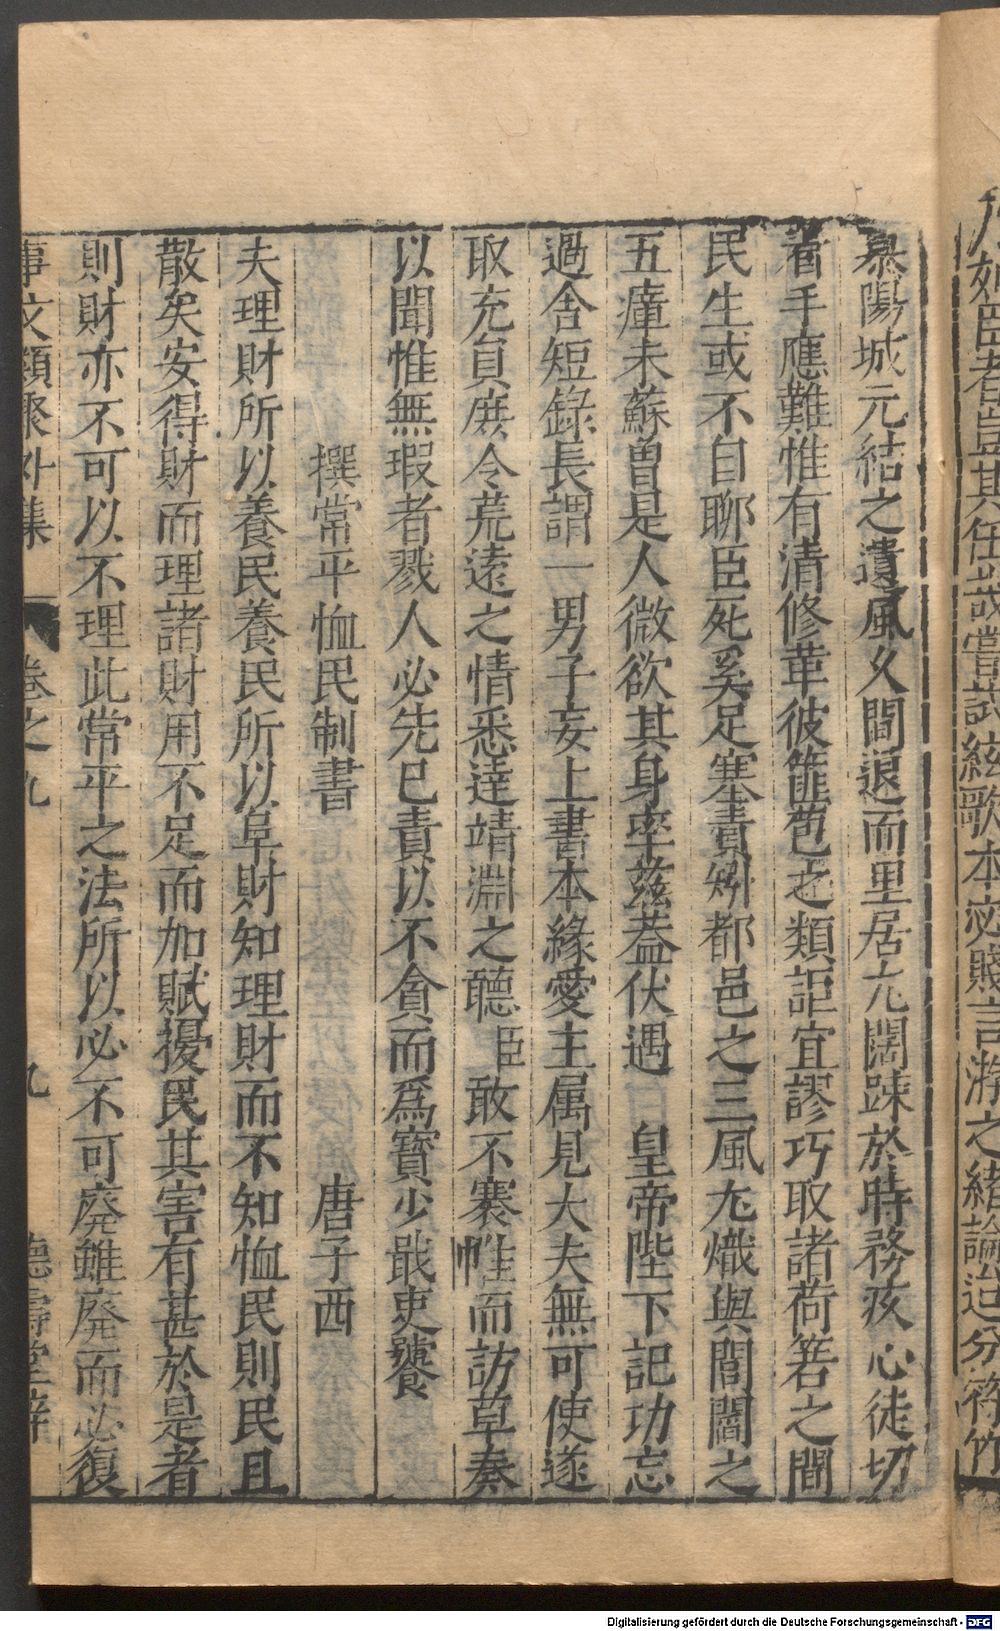 尤如臣者豈其任哉嘗試絃歌本宓賤言游之緒論迨分符竹
暴陽城元結之遺風久間退而里居尤闊踈於時務疚心徒切
着手應難惟有清修革彼篚苞之類詎宜謬巧取諸荷箬之間
民生或不自聊臣死奚足塞責矧都邑之三風尢熾與閭閻之
五瘴未蘇曽是人微欲其身率茲葢伏遇 皇帝陛下記功忘
過舍短錄長謂一男子妄上書本緣愛主属見大夫無可使遂
取充貟庻令荒遠之情悉達靖淵之聽臣敢不褰帷而訪草奏
以聞惟無瑕者戮人必先已責以不貪而爲寶少戢吏饕
撰常平恤民制書 唐子西
夫理財所以養民養民所以阜財知理財而不知恤民則民且
散矣安得財而理諸財用不足而加賦擾民其害有甚於是者
則財亦不可以不理此常平之法所以必不可廢雖廢而必復
事文類聚外集 卷之九 九 德壽堂梓
Digitalisierung gefördert durch die Deutsche Forschungsgemeinschaft - DFG